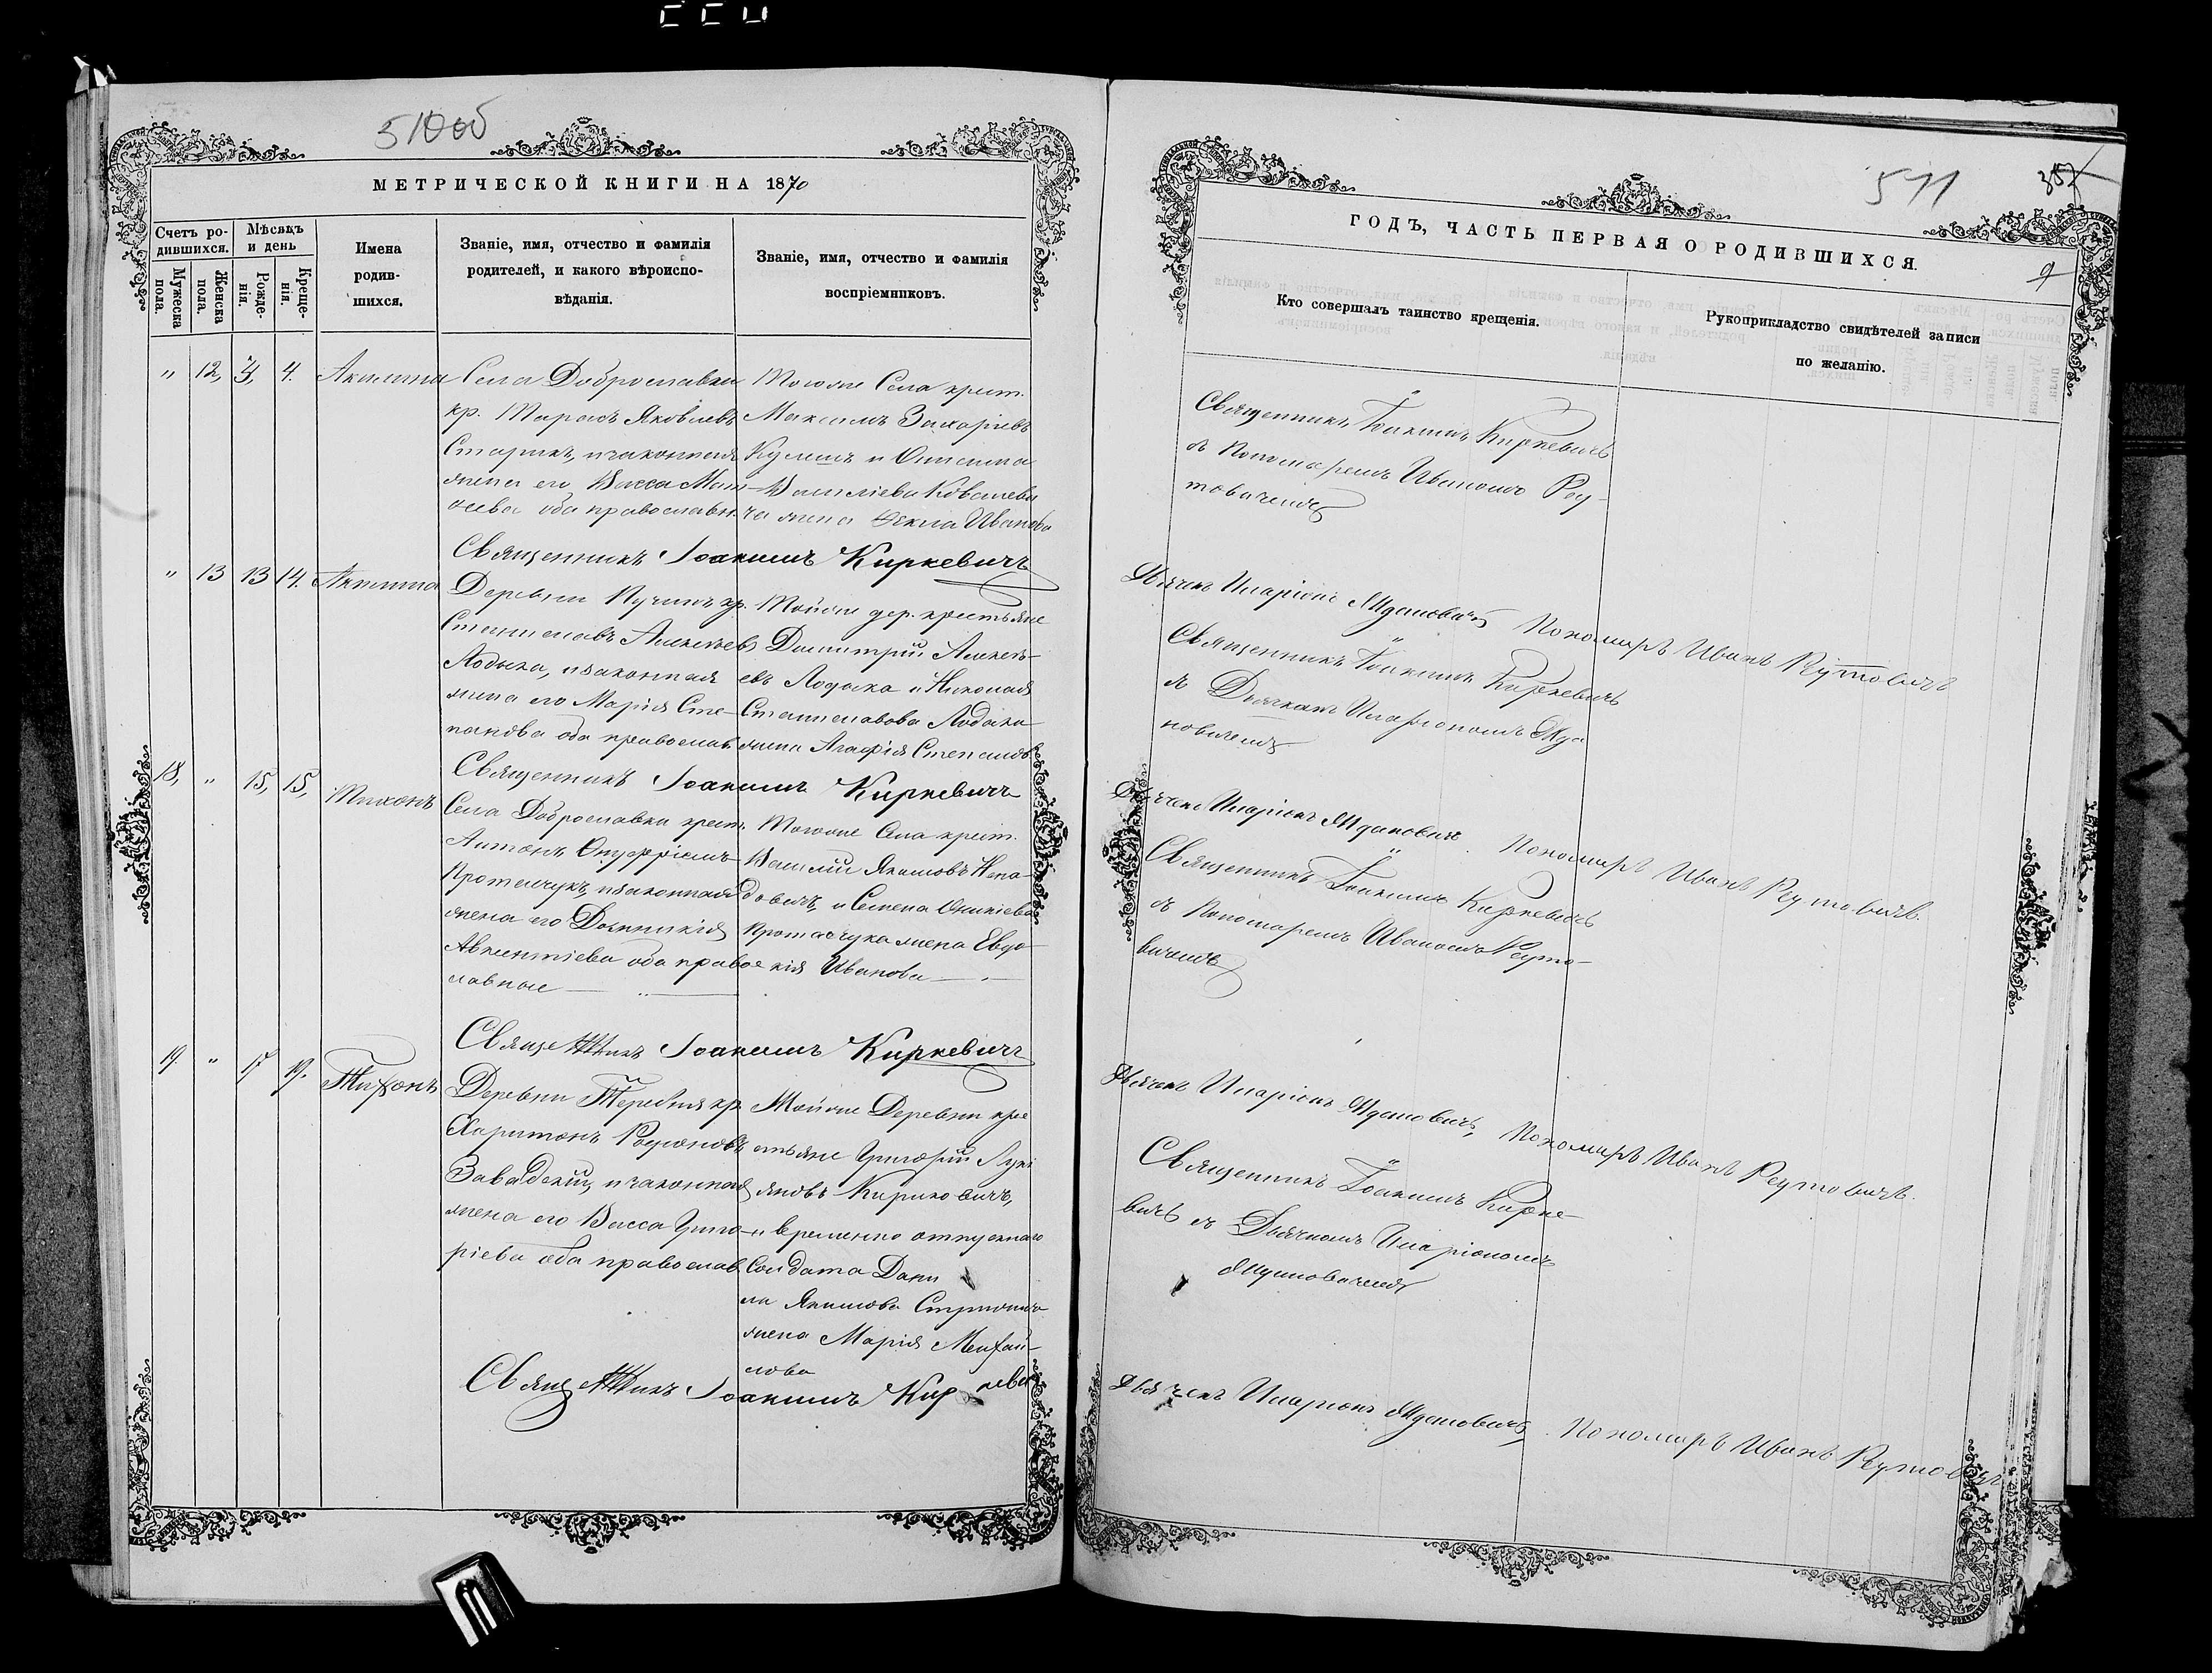 510об
МЕТРИЧЕСКОЙ КНИГИ НА 1870
Счетъ ро-
дившихся.
Мѣсяцъ
и день
Мужеска
пола.
Женска
пола.
Рожде-
нія.
Креще-
нія.
Имена
родив-
шихся.
Званіе, имя, отчество и фамилія
родителей, и какого вѣроиспо-
вѣданія.
Званіе, имя, отчество и фамилія
воспріемниковъ.
" 12, 3, 4. Акилина
Села Доброславки
кр. Тарасъ Яковлевъ
Старикъ, и законная
жена его Васса Мат-
ѳеева оба православн.
Тогоже Села крест.
Максимъ Захаріевъ
Кулешъ и
Василіева Ковалеви
ча жена Ѳекла Иванова
Священникъ Іоакимъ Киркевичъ
" 13 13 14. Акилина
Деревни кр.
Станиславъ Алексѣевъ
Лодыка, и законная
жена его Марія Сте-
панова оба православ
Тойже дер. крестьяне
Димитрій Алексѣ-
евъ Лодыка и Николая
Станиславова Лодыка
жена Агафія Степанов
Священникъ Іоакимъ Киркевичъ
18, " 15, 15, Тихонъ
Села Доброславки крест.
Антонъ Онуфріевъ
Протасчукъ, и законная
жена его Домникія
Авксентіева оба правос
лавные
Тогоже Села крест.
Василій Якимовъ
довичъ, и Семена
Протасчука жена Евдо
кія Иванова
Священникъ Іоакимъ Киркевичъ
19. " 17 19. Тихонъ
Деревни Теребня кр.
Харитонъ Родіоновъ
Завадскій, и законная
жена его Васса Григо
ріева оба православ
Тойже Деревни кре
стьяне Григорій Луки
яновъ Кириковичъ,
и временно отпускнаго
Солдата Дани
ла Якимова
жена Марія Михай-
лова
Священникъ Іоакимъ Киркевичъ
511
357
9
ГОДЪ, ЧАСТЬ ПЕРВАЯ О РОДИВШИХСЯ.
Кто совершалъ таинство крещенія.
Рукоприкладство свидѣтелей записи
по желанію.
Священникъ Іоакимъ Киркевичъ
съ Пономаремъ Иваномъ Реу-
товичемъ
Дьячекъ Иларіонъ Ждановичъ Пономарь Иванъ Реутовичъ
Священникъ Іоакимъ Киркевичъ
съ Дьячкомъ Иларіономъ Жда
новичемъ
Дьячекъ Иларіонъ Ждановичъ. Пономарь Иванъ Реутовичъ.
Священникъ Іоакимъ Киркевичъ
съ Пономаремъ Иваномъ Реуто-
вичемъ
Дьячекъ Иларіонъ Ждановичъ, Пономарь Иванъ Реутовичъ.
Священникъ Іоакимъ Кирке-
вичъ съ Дьячкомъ Иларіономъ
Ждановичемъ
Дьячекъ Иларіонъ Ждановичъ. Пономарь Иванъ Реутовичъ